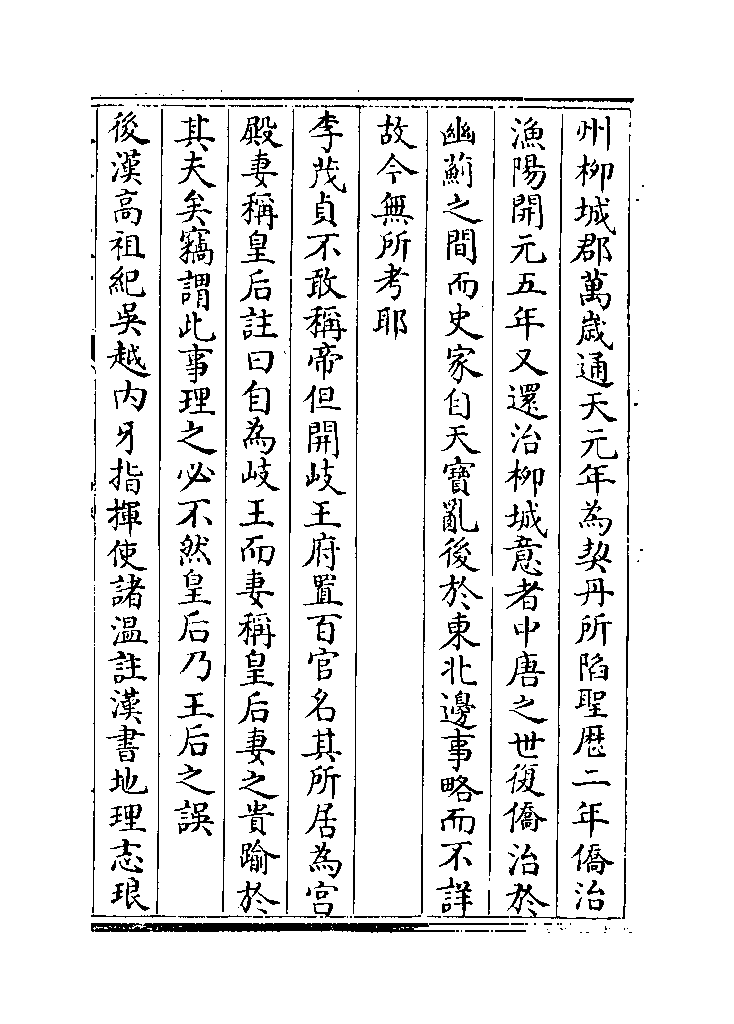 州柳城郡萬歲通天元年為契丹所陷聖厯二年僑治
漁陽開元五年又還治柳城意者中唐之世復僑治於
幽薊之間而史家自天寶亂後於東北邊事略而不詳
故今無所考耶
李茂貞不敢稱帝但開岐王府置百官名其所居為宮
殿妻稱皇后註曰自為岐王而妻稱皇后妻之貴踰於
其夫矣竊謂此事理之必不然皇后乃王后之誤
後漢高祖紀吳越内牙指揮使諸温註漢書地理志琅